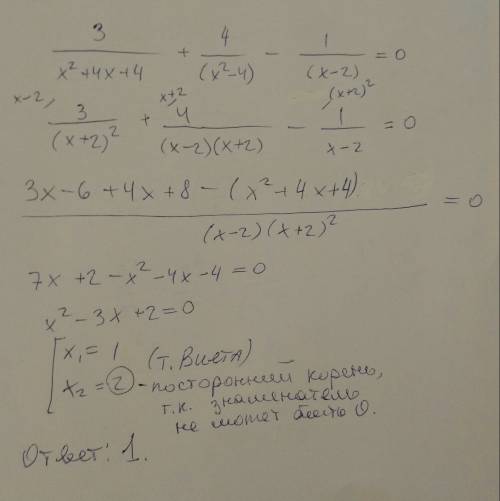 3/(x²+4x+4) + 4/(x²-4) - 1/(x-2) = 0
x-2, 3/(x+2)² + x+2, 4/((x-2)(x+2)) - (x+2)², 1/(x-2) = 0
(3x-6+4x+8-(x²+4x+4))/((x-2)(x+2)²) = 0
7x+2-x²-4x-4=0
x²-3x+2=0
[ x₁=1 (т. Виета)
x₂=2 - посторонний корень,
т.к. знаменатель
не может быть 0.
Ответ: 1.